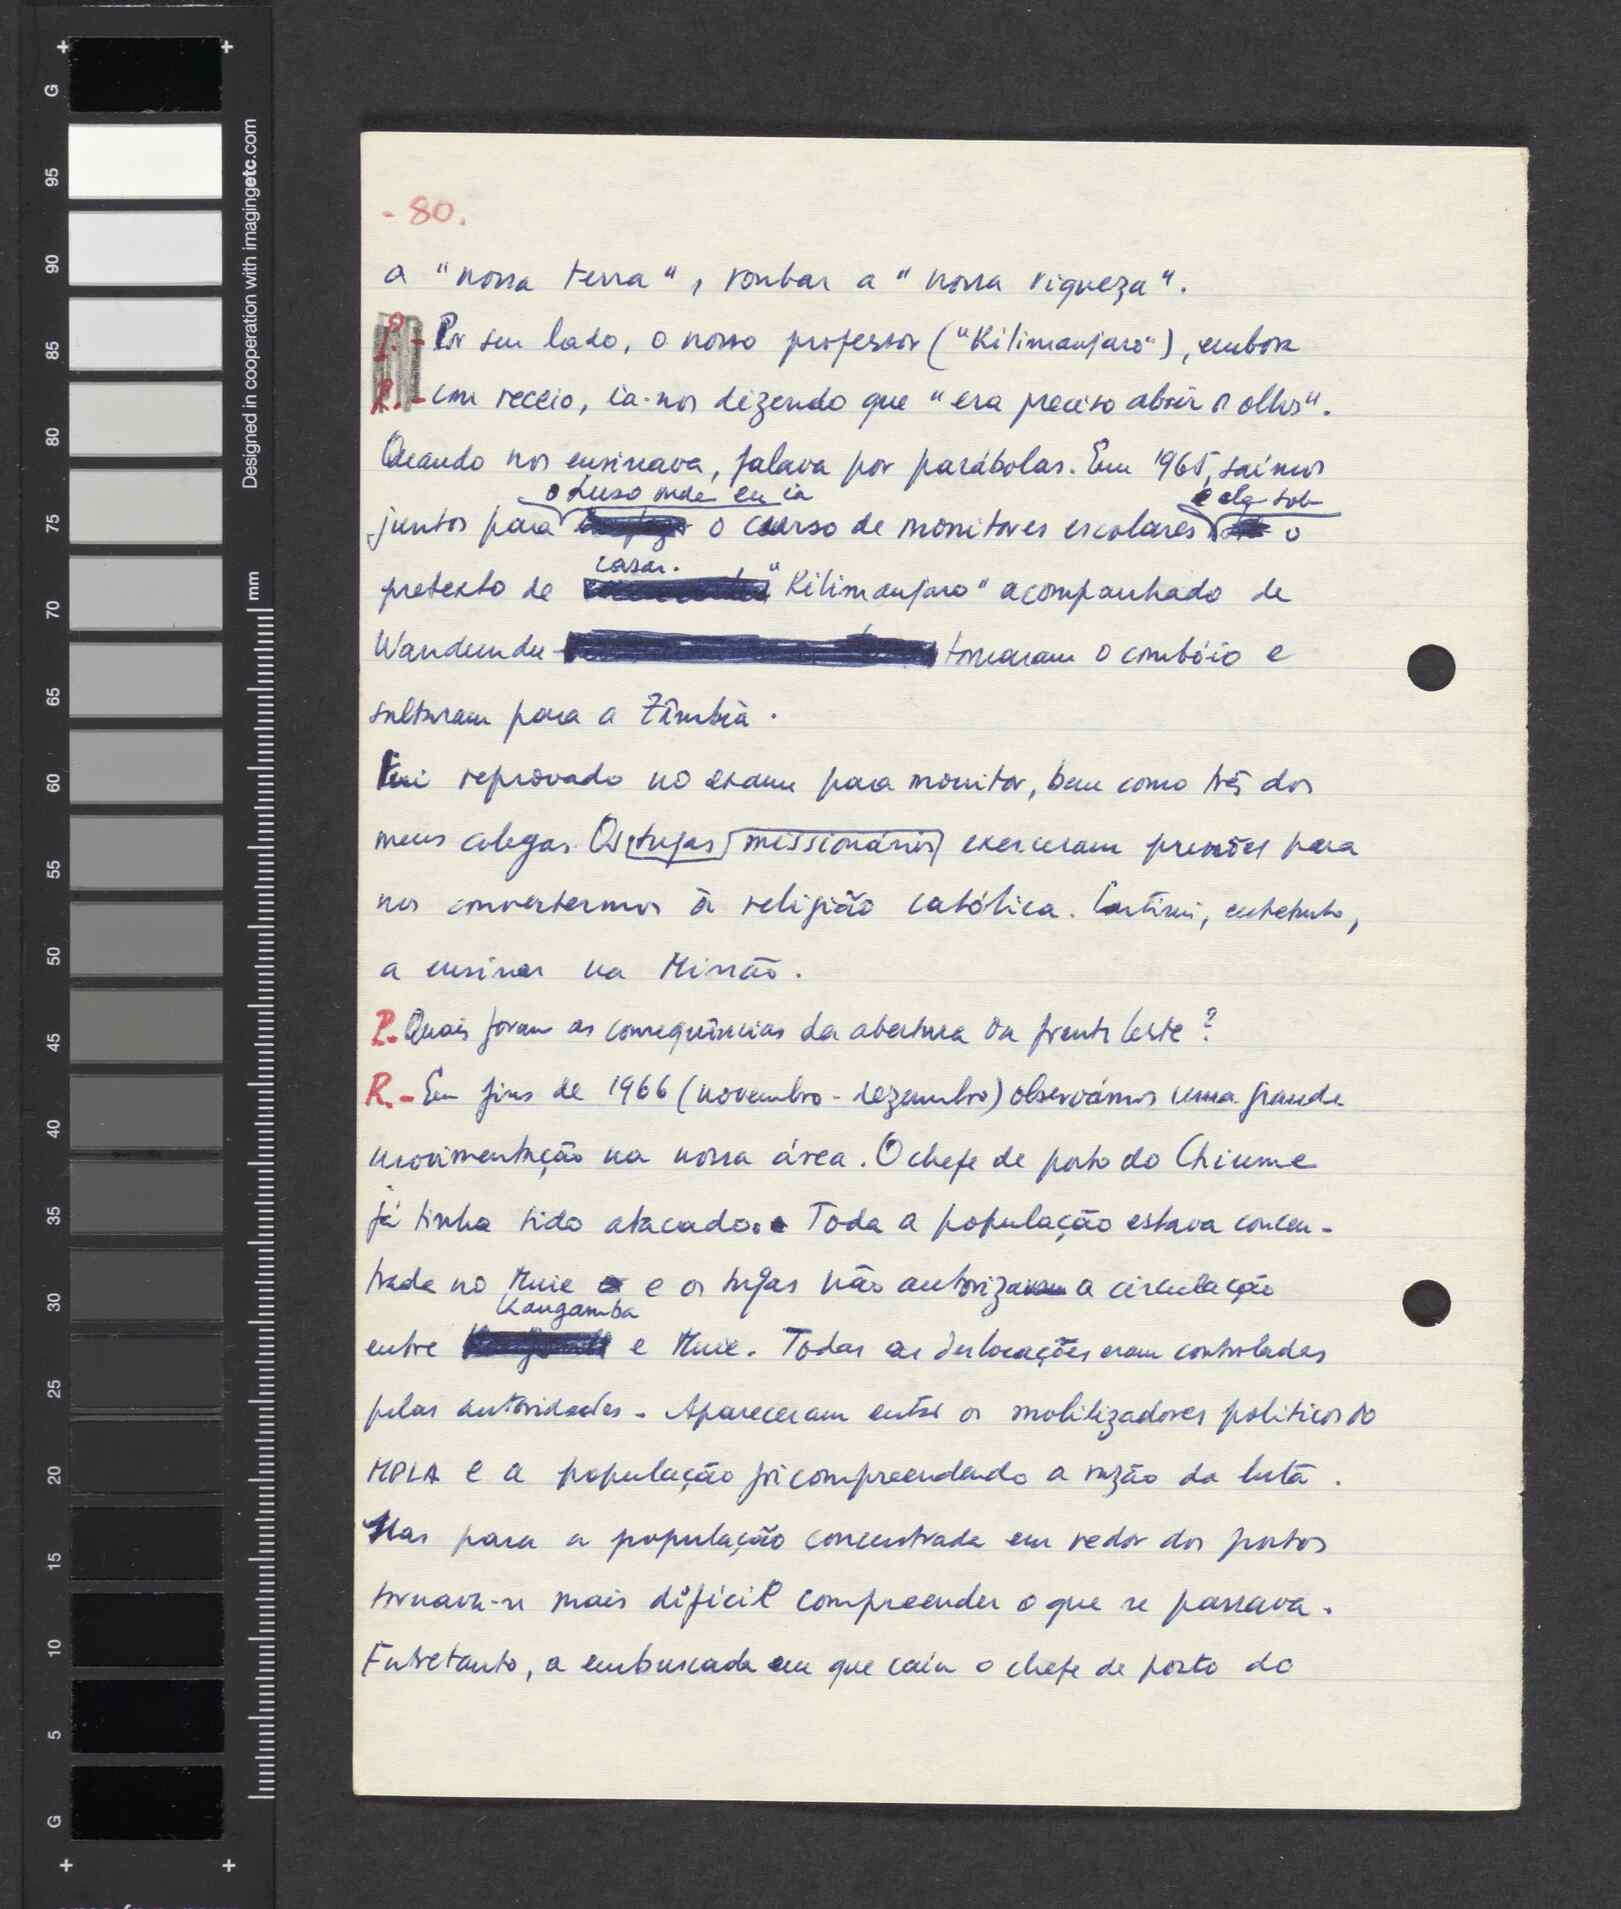 - 80.
a "nossa terra", roubar a "nossa riqueza".
P. - Por seu lado, o nosso professor ("Kilimanjaro"), embora
R. - com receio, ia-nos dizendo que "era preciso abrir os olhos".
Quando nos ensinava, falava por parábolas. Em 1965, saímos
o Luso onde eu ia
e ele sob
juntos para o curso de monitores escolares o
casar.
pretexto de "Kilimanjaro" acompanhado de
tomaram o combóio e
saltaram para a Zâmbia.
Fui reprovado no exame para monitor, bem como três dos
meus colegas. Os tugas missionários exerceram pressões para
nos convertermos à religião católica. Continuei, entretanto,
a ensinar na Missão.
P. Quais foram as consequências da abertura da frente leste?
R. - Em fins de 1966 (novembro - dezembro) observámos uma grande
movimentação na nossa área. O chefe de posto do Chiume
já tinha sido atacado. Toda a população estava concen-
trada no Muie e os tugas não autorizavam a circulação
Kangamba
entre e Muie. Todas as deslocações eram controladas
pelas autoridades. Apareceram então os mobilizadores politicos do
MPLA e a população foi compreendendo a razão da luta.
Mas para a população concentrada em redor dos postos
tornava-se mais difícil compreender o que se passava.
Entretanto, a emboscada em que caiu o chefe de posto do
Designed in cooperation with imagingetc.com
mm
G
95
90
85
80
75
70
65
60
55
50
45
40
35
30
25
20
15
10
5
G